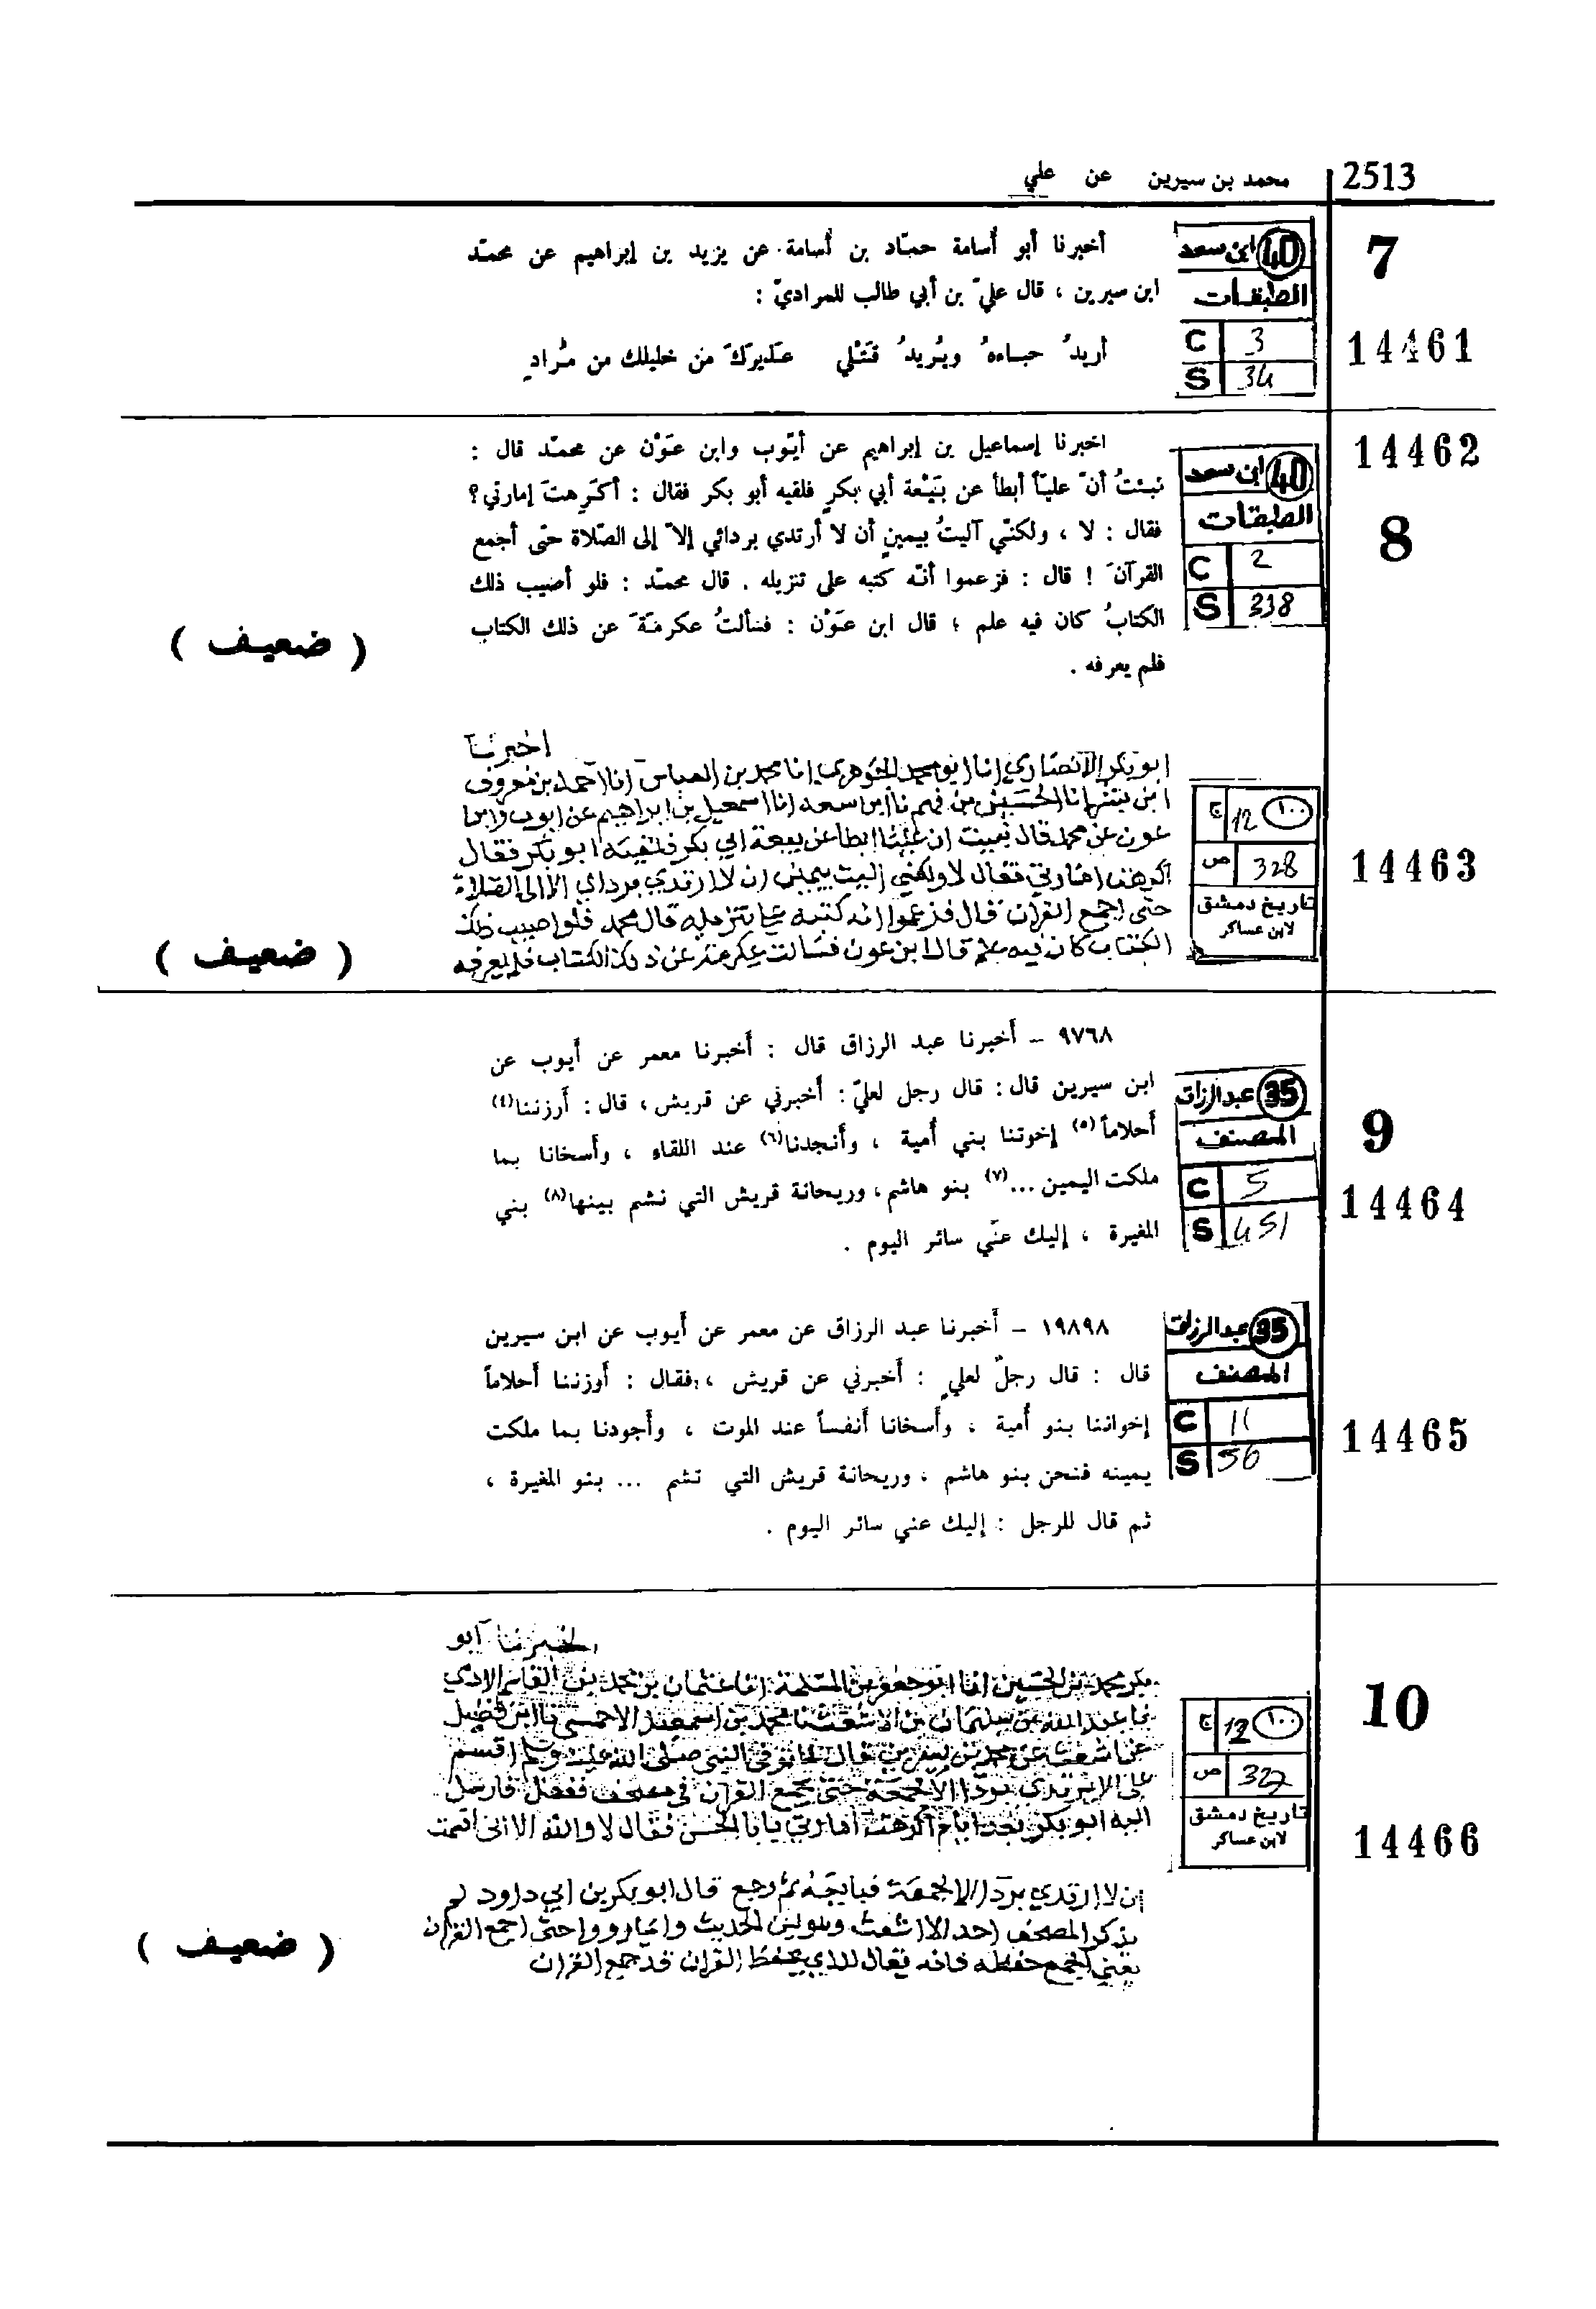 2513 محمد بن سيرين عن علي
7
14461
40 ابن سعد
الطبقات
C 3
S 34
أخبرنا أبو أُسامة حمّاد بن أُسامة عن يزيد بن إبراهيم عن محمّد
ابن سيرين ، قال عليّ بن أبي طالب للمراديّ :
أريدُ حباءهُ ويُريدُ قَتْلي عَذيرَكَ من خليلك من مُرادِ
14462
8
40 ابن سعد
الطبقات
C 2
S 338
اخبرنا إسماعيل بن إبراهيم عن أيّوب وابن عَوْن عن محمّد قال :
نبئتُ أنّ عليّاً أبطأ عن بَيْعة أبي بكرٍ فلقيه أبو بكر فقال : أكَرِهتَ إمارتي ؟
فقال : لا ، ولكنّي آليتُ بيمينٍ أن لا أرتدي بردائي إلاّ إلى الصّلاة حتّى أجمع
القرآنَ ! قال : فزعموا أنّه كتبه على تنزيله . قال محمّد : فلو أصيب ذلك
الكتابُ كان فيه علم ؛ قال ابن عَوْن : فسألتُ عكرمَةَ عن ذلك الكتاب
فلم يعرفه .
( ضعيف )
14463
١٠٠ 12 ج
328 ص
تاريخ دمشق
لابن عساكر
اخبرنا
ابو بكر الانصاري انا ابو محمد الجوهري انا محمد بن العباس انا احمد بن معروف
ابن انا الحسين بن فهم نا ابن سعد انا اسمعيل بن ابراهيم عن ايوب وابن
عون عن محمد قال نبيت ان عليا ابطا عن بيعة ابي بكر فلقيه ابو بكر فقال
اكرهت امارتي فقال لا ولكني اليت بيمين ان لا ارتدي بردائي الا الى الصلاة
حتى اجمع القران قال فزعموا انه كتبه على تنزيله قال محمد فلو اصيب ذلك
الكتاب كان فيه علم قال ابن عون فسالت عكرمة عن ذلك الكتاب فلم يعرفه
( ضعيف )
9
14464
35 عبدالرزاق
المصنف
C 5
S 451
٩٧٦٨ – أخبرنا عبد الرزاق قال : أخبرنا معمر عن أيوب عن
ابن سيرين قال : قال رجل لعليّ : أخبرني عن قريش ، قال : أرزننا (٤)
أحلاماً (٥) إخوتنا بني أمية ، وأنجدنا (٦) عند اللقاء ، وأسخانا بما
ملكت اليمين ... (٧) بنو هاشم ، وريحانة قريش التي نشم بينها (٨) بني
المغيرة ، إليك عنّي سائر اليوم .
14465
35 عبدالرزاق
المصنف
C 11
S 56
١٩٨٩٨ – أخبرنا عبد الرزاق عن معمر عن أيوب عن ابن سيرين
قال : قال رجلٌ لعلي : أخبرني عن قريش ، فقال : أوزننا أحلاماً
إخواننا بنو أمية ، وأسخانا أنفساً عند الموت ، وأجودنا بما ملكت
يمينه فنحن بنو هاشم ، وريحانة قريش التي تشم ... بنو المغيرة ،
ثم قال للرجل : إليك عني سائر اليوم .
10
14466
١٠٠ 12 ج
327 ص
تاريخ دمشق
لابن عساكر
اخبرنا ابو
بكر محمد بن الحسين انا ابو جعفر بن المسلمة انا عثمان بن محمد بن القاسم الادمي
نا عبد الله بن سليمان بن الاشعث نا محمد بن اسمعيل الاحمسي نا ابن فضيل
عن اشعث عن محمد بن سيرين قال لما توفي النبي صلى الله عليه وسلم اقسم
علي الا يرتدي برداء الا لجمعة حتى يجمع القران في مصحف ففعل فارسل
اليه ابو بكر بعد ايام اكرهت امارتي يا ابا الحسن فقال لا والله الا اني اقسمت
ان لا ارتدي برداء الا لجمعة فبايعه ثم رجع قال ابو بكر بن ابي داود لم
يذكر المصحف احد الا اشعث وهو لين الحديث وانما رووا حتى اجمع القران
يعني اتم حفظه فانه يقال للذي يحفظ القران قد جمع القران
( ضعيف )